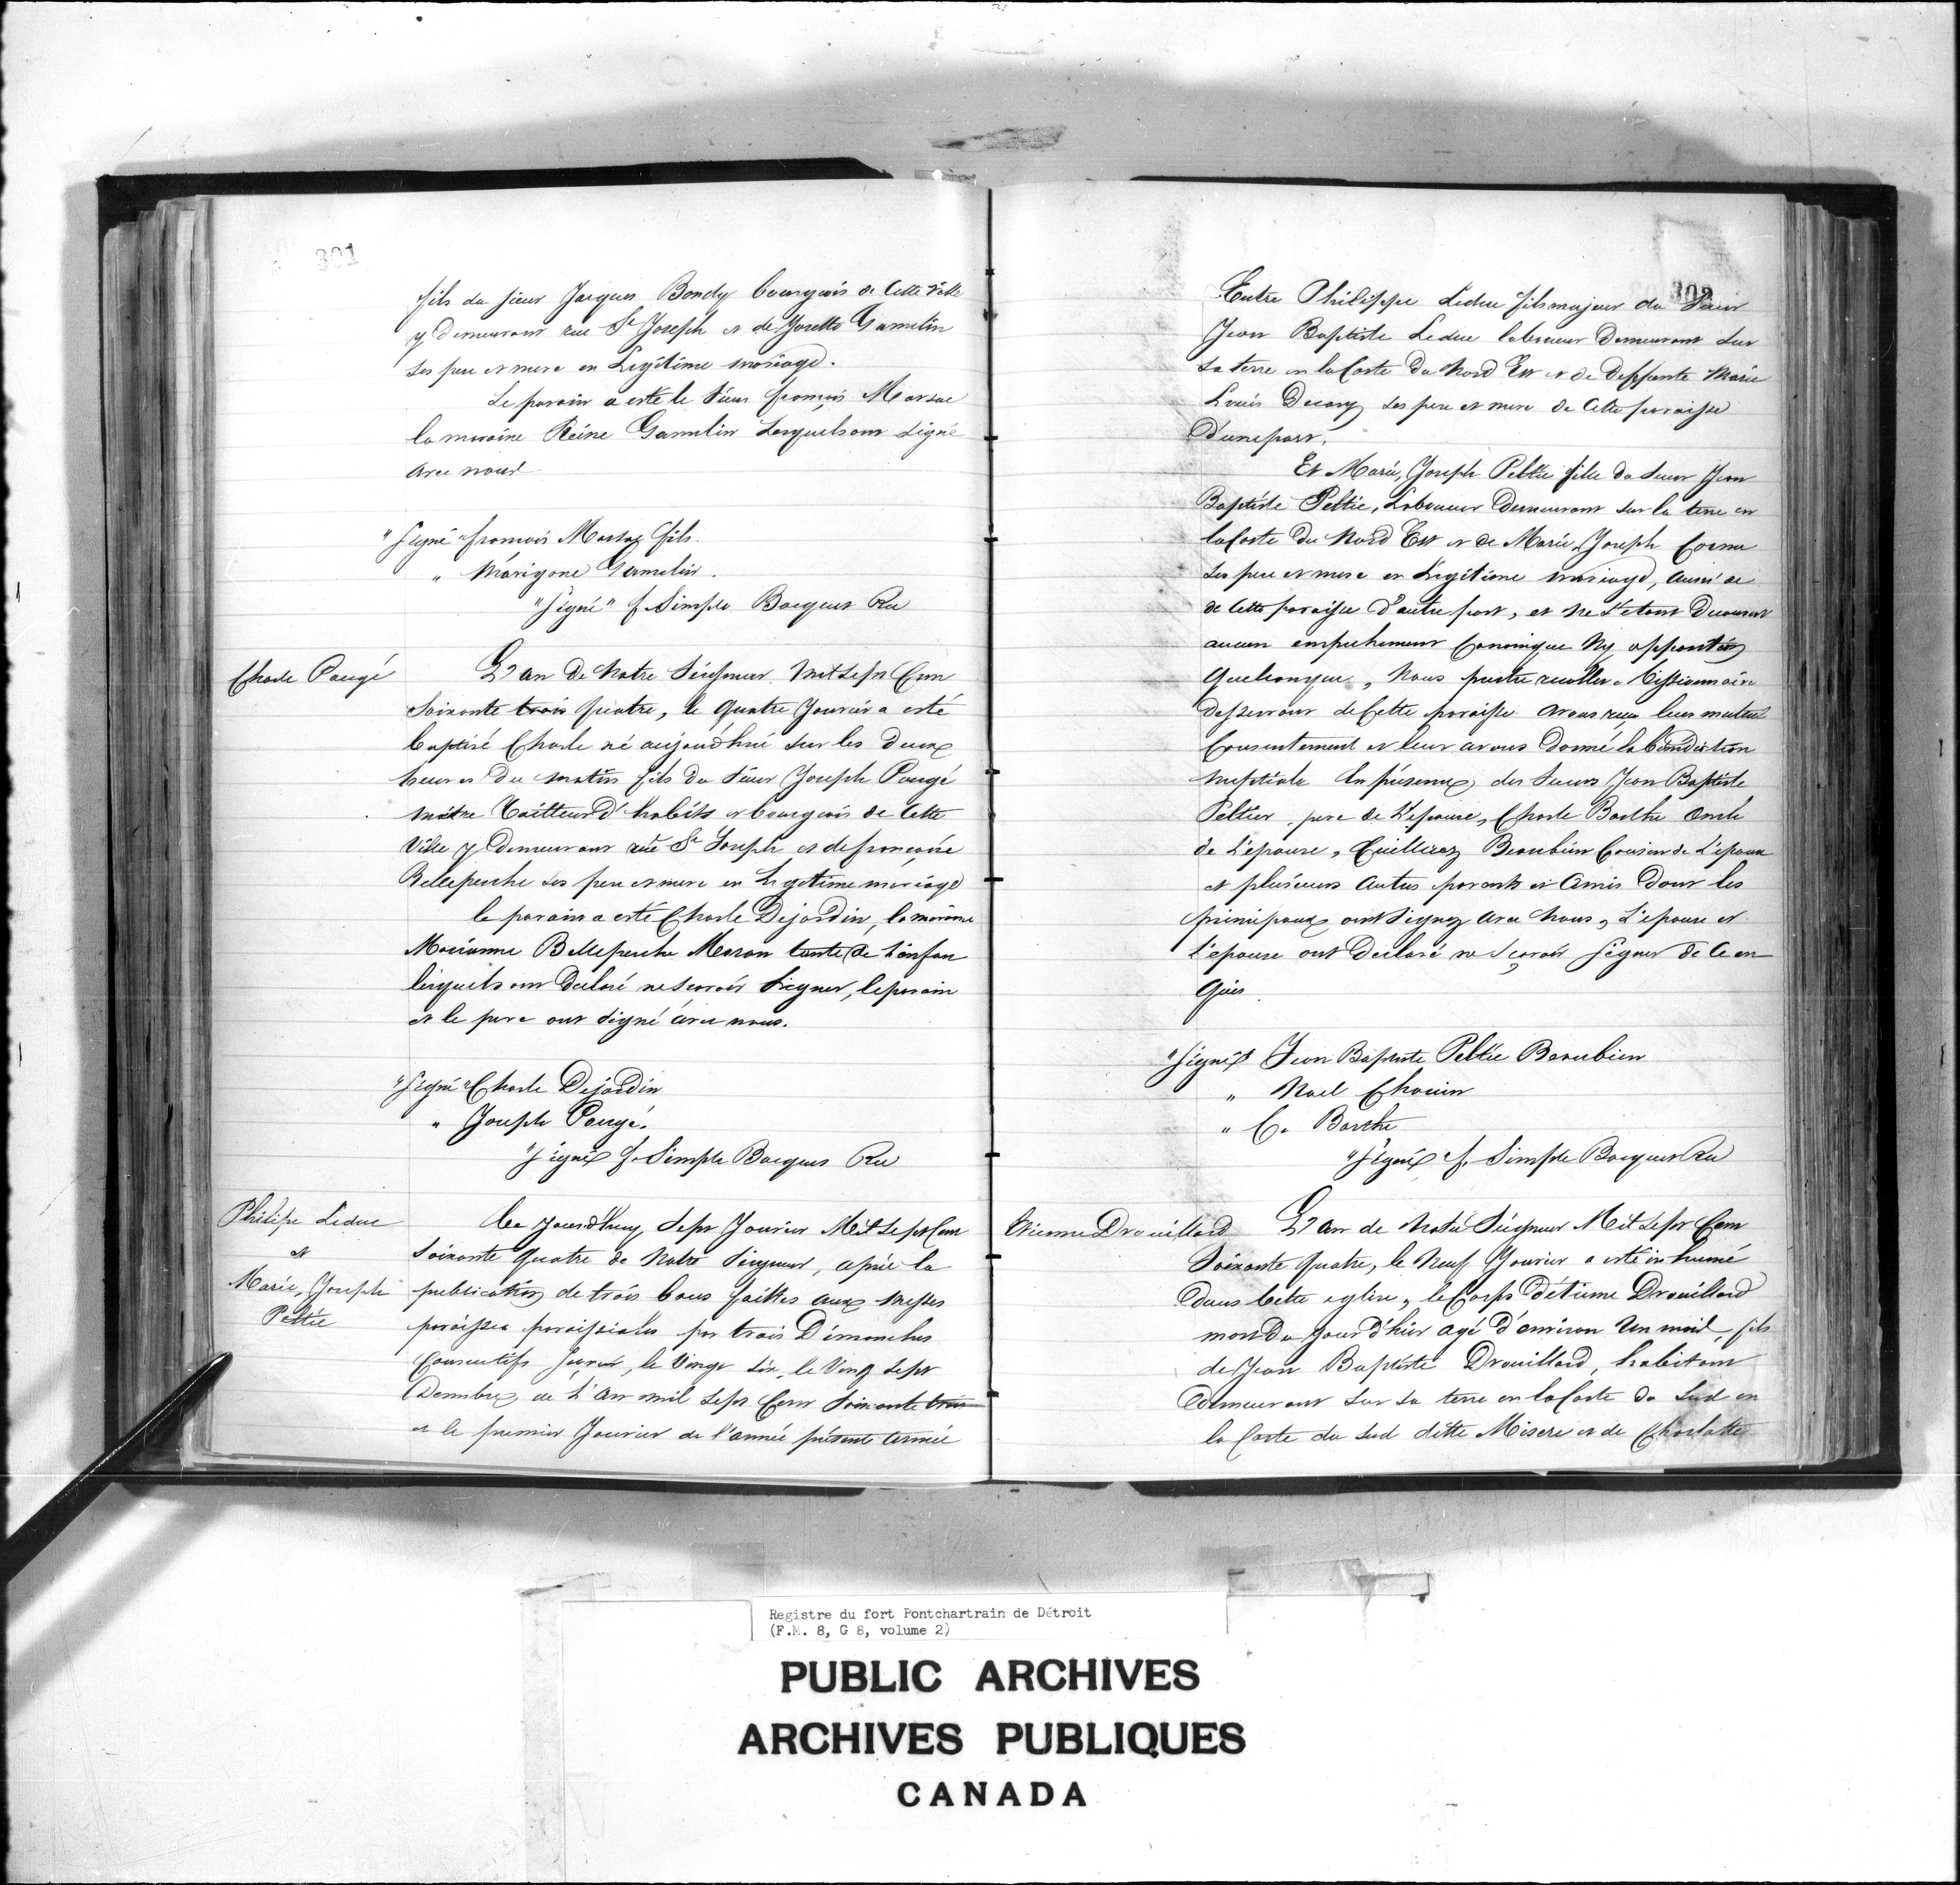 301
fils du sieur Jacques Bondy bourgeois de Cette Ville
y Demeurant rue St Joseph et de Josette Gamelin
ses pere et mere en Legitime mariage.
Le parain a esté le Sieur françois Marsac
la maraine Reine Gamelin Lesquels ont signé
avec nous
"Signé" francois Marsac fils.
" Marigone Gamelin.
"Signé" f. Simple Bocquet Rec
Charle Pougé
L'an De Notre Seigneur Mil Sept Cent
Soixante trois quatre, le quatre Janvier a esté
baptisé Charle né aujourd'hui sur les deux
heures Du matin fils du Sieur Joseph Pougé
maitre Tailleur D'habits et bourgeois de Cette
Ville y Demeurant rue St Joseph et de françoise
Belleperche ses pere et mere en Legitime mariage
le parain a esté Charle Dejardin, la maraine
Marianne Belleperche Meran tante de L'enfan
lesquels ont Declaré ne Scavoir Signer, le parain
et le pere ont signé avec nous.
"Signé" Charle Dejardin
" Joseph Pougé.
"Signé" f. Simple Bocquet Rec
Philipe Leduc
et
Marie, Joseph
Peltie
Ce jourd'huy Sept Janvier Mil Sept Cent
Soixante quatre de Notre Seigneur, aprés la
publication de trois bans faittes aux Messes
paroisses paroissiales par trois Dimanches
Consecutifs Scavoir, le Vingt Six, le Vingt Sept
Decembre de L'an mil Sept Cent Soixante trois
et le premier Janvier de l'année présente année
302
Entre Philippe Leduc fils majeur du Sieur
Jean Baptiste Leduc laboureur Demeurant sur
Sa terre en la Coste du Nord Est et de Deffunte Marie
Louis Decary ses pere et mere de Cette paroisse
D'une part.
Et Marie, Joseph Peltie fille du Sieur Jean
Baptiste Peltie, Laboureur Demeurant sur la terre en
la Coste du Nord Est et de Marie, Joseph Cornu
ses pere et mere en Legitime mariage, aussi de
de Cette paroisse D'autre part, et ne S'etant Decouvert
aucun empechement Canonique Ny opposition
Quelconque, Nous prestre recollet Missionnaire
desservant de Cette paroisse avons reçu leur mutuel
Consentement et leur avons Donné la bénédiction
nuptiale En présence des Sieurs Jean Baptiste
Peltier pere de L'epouse, Charle Barthe oncle
de L'epouse, Cuilleriez Beaubien Cousin de L'epoux
et plusieurs Autres parents et Amis Dont les
principaux ont Signez avec Nous, L'epoux et
l'epouse ont Declaré ne Scavoir Signer de Ce en
Quis
"Signé" Jean Baptiste Peltie Beaubien
" Noel Chovin
" C. Barthe
"Signé" f. Simple Bocquet Rec
Etienne Drouillard
L'an de Notre Seigneur Mil Sept Cent
Soixante quatre, le Neuf Janvier a esté inhumé
Dans Cette eglise, le Corps d'Etienne Drouillard
mort du jour d'hier agé D'environ Un mois, fils
de Jean Baptiste Drouillard, habitant
Demeurant sur sa terre en la Coste du Sud en
la Coste du Sud ditte Misere et de Charlotte
Registre du fort Pontchartrain de Détroit
(F.M. 8, G 8, volume 2)
PUBLIC ARCHIVES
ARCHIVES PUBLIQUES
CANADA